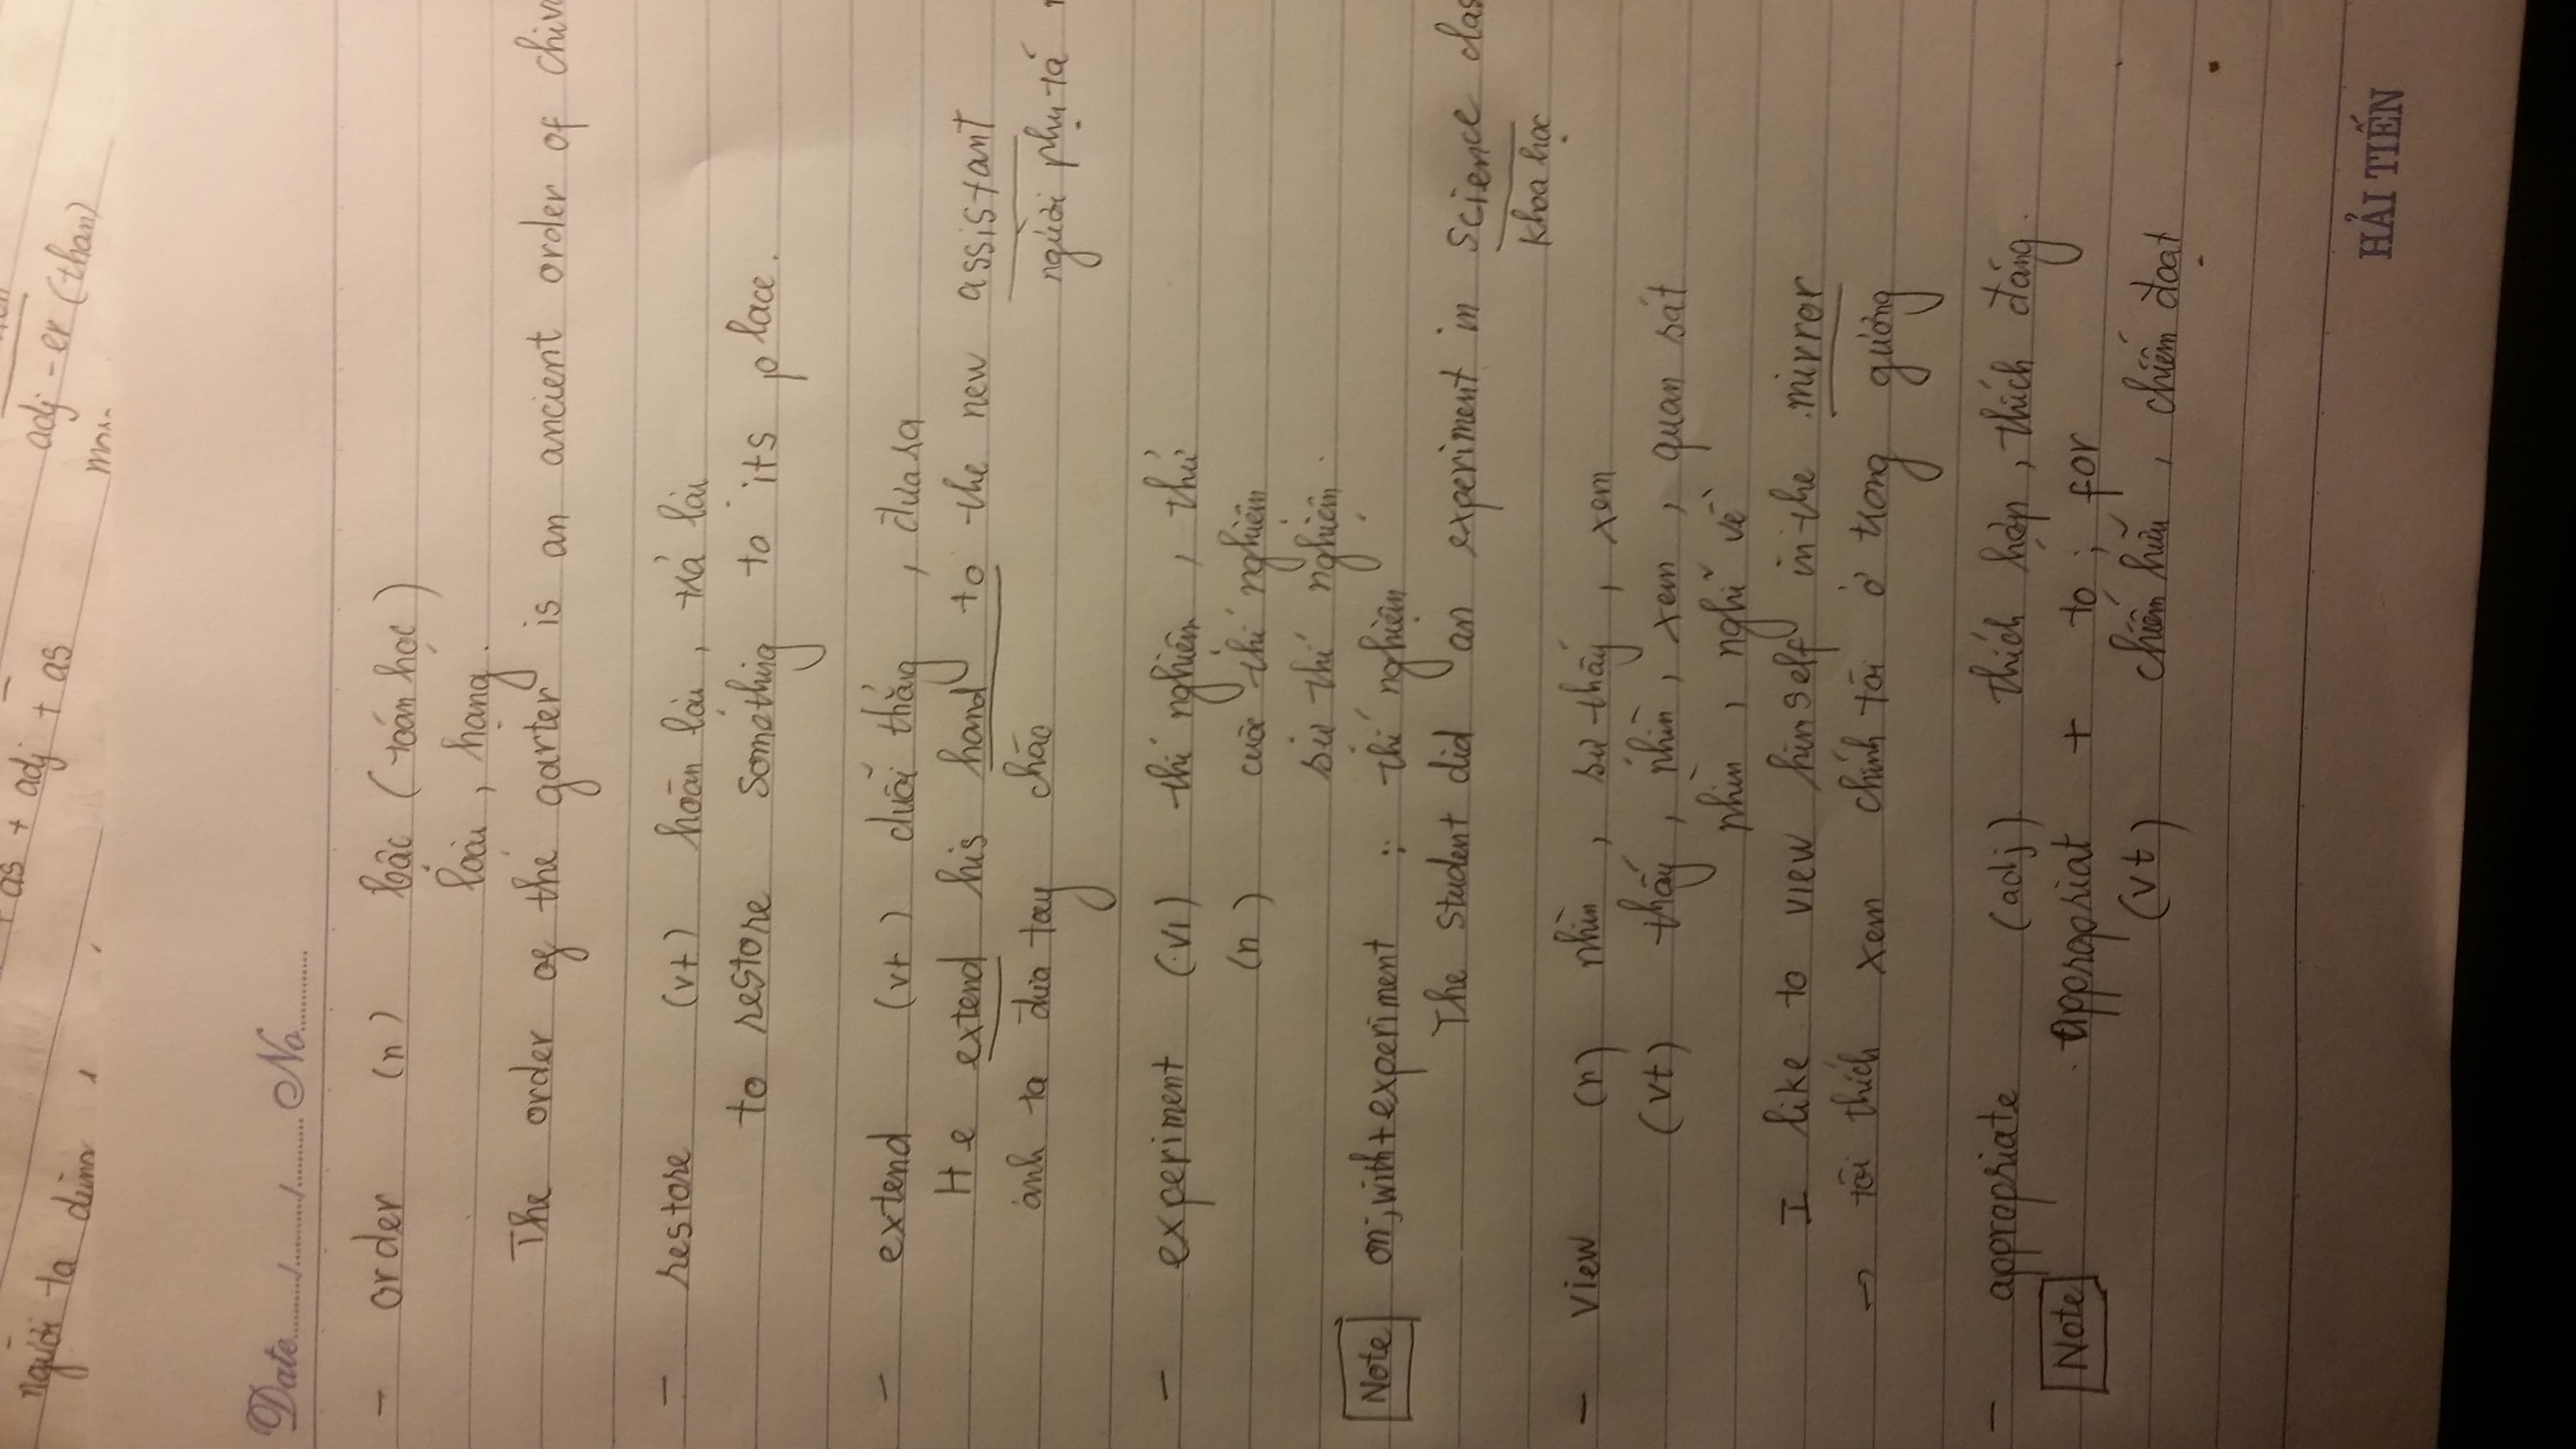 as + adj + as adj - er (than)
người ta dùng
Date / / No
- order (n) bậc (toán học)
loại, hạng.
The order og the garter is an ancient order of chiv
- restore (vt) hoàn lại, trả lại
to restore something to its place.
- extend (vt) duỗi thẳng, đưa ra
He extend his hand to the new assistant
anh ta đưa tay chào người phụ tá
- experiment (vi) thí nghiệm, thử
(n) cuộc thí nghiệm
sự thí nghiệm.
Note on; with + experiment : thí nghiệm
The student did an experiment in science clas
khoa học
- view (n) nhìn, sự thấy, xem
(vt) thấy, nhìn, xem, quan sát
nhìn, nghĩ về
I like to view himself in the mirror
→ tôi thích xem chính tôi ở trong gương
- appropriate (adj) thích hợp, thích đáng.
Note appropriat + to; for
(vt) chiếm hữu, chiếm đoạt
HẢI TIẾN